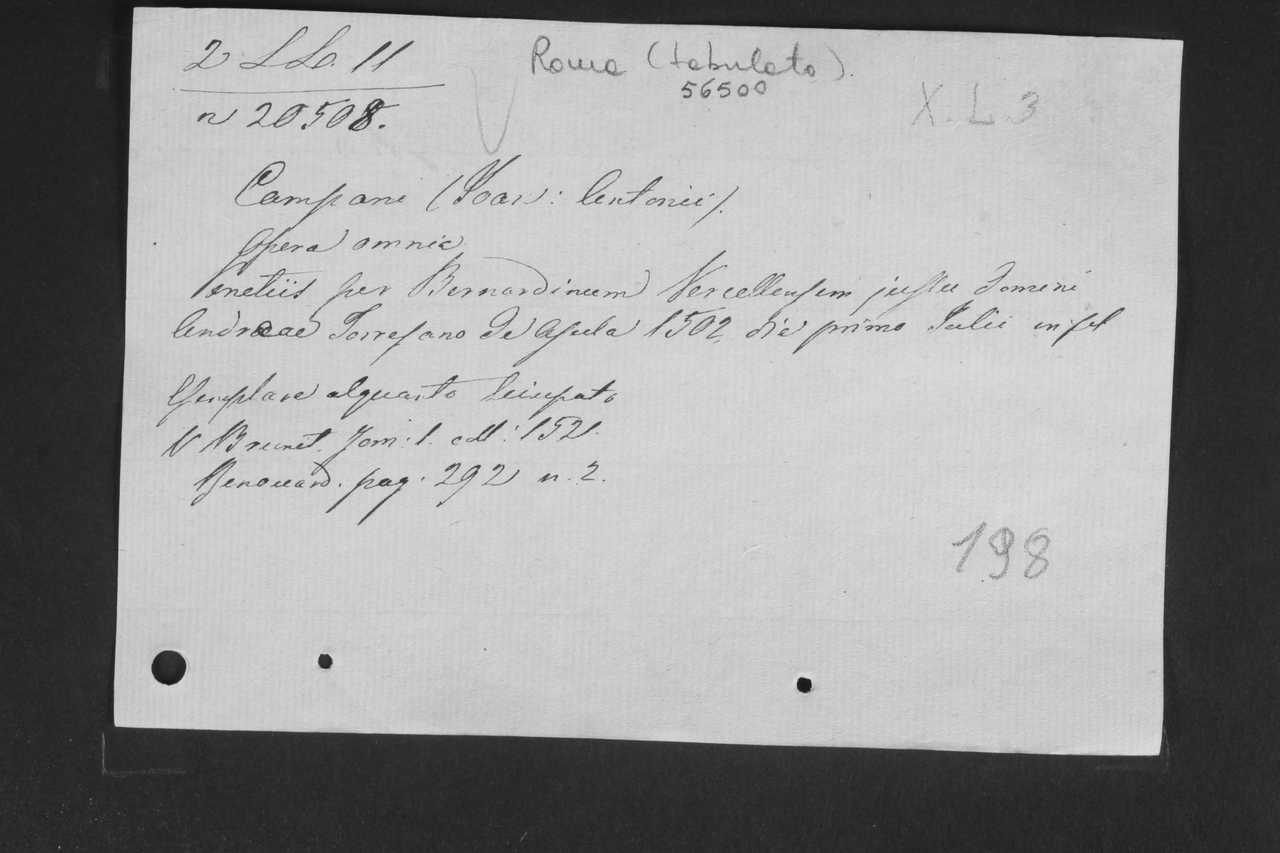 2 L Lo. 11
Roma (tabulato).
56500
n 20508.
X. L 3
Campani (Joan: Antonii).
Opera omnia
Venetiis per Bernardinum Vercellensem jussu domini
Andreae Torresano de Asula 1502 die primo Julii in fol
Esemplare alquanto sciupato
V Brunet. Tom: 1. coll: 1521.
Renouard. pag. 292 n. 2.
198